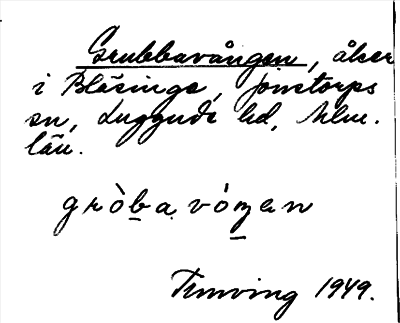 Grubbavången, åker
i Bläsinge, Jonstorps
sn, Luggude hd, Mlm.
län.
gròba vóŋen
1949.